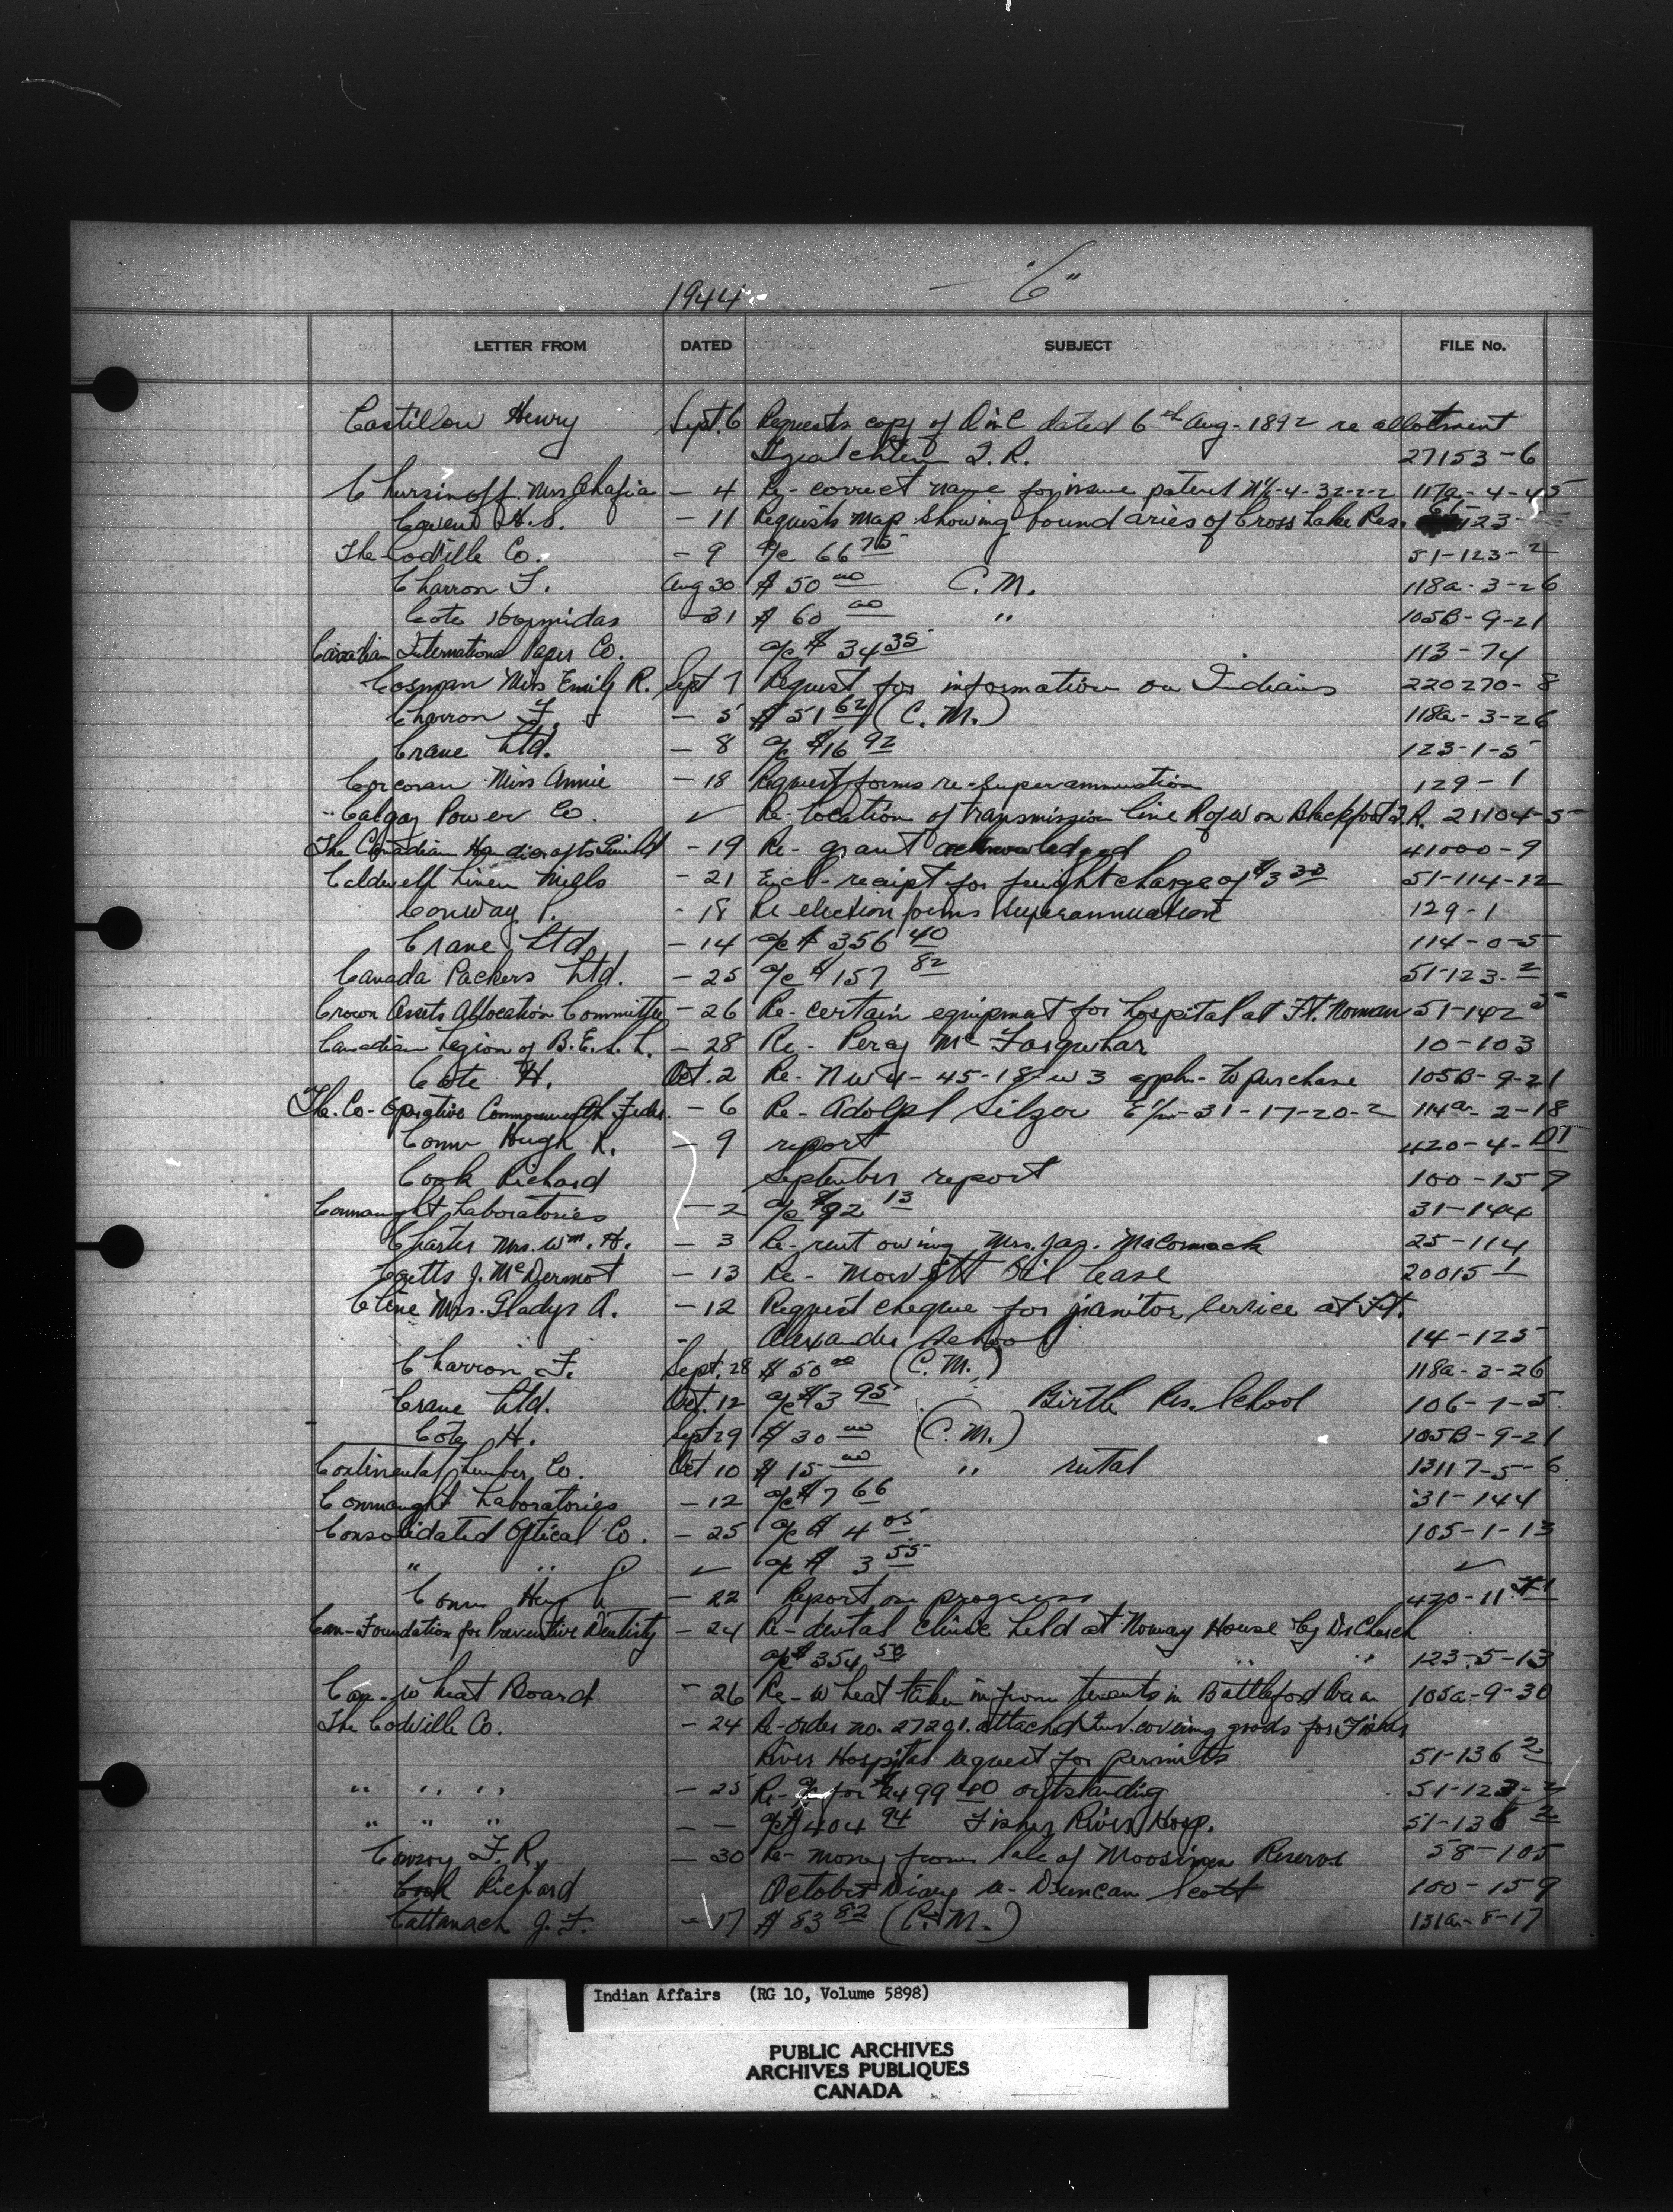 1944 "C"
LETTER FROM DATED SUBJECT FILE No.
Castillou Henry Sept. 6 Requests copy of O in C dated 6th Aug - 1892 re allotment
I. R. 27153-6
Mrs - 4 Re - correct name for issue patent 4-32-2-2 117a-4-45
H.S. - 11 Requests map showing boundaries of Cross Lake Res.
The Codville Co. - 9 a/c 66 75 51-123-2
Charron F. Aug 30 $ 50 00 C.M. 118a-3-26
Cote Hormidas - 31 $ 60 00 " 105B-9-21
Canadian International Paper Co. a/c $ 34 35 113-74
Cosman Miss Emily R. Sept 7 Request for information on Indians 220270-8
Charron F. - 5 $ 51 62 (C.M.) 118a-3-26
Crane Ltd. - 8 a/c $16 92 123-1-5
Corcoran Miss Annie - 18 Request forms re-superannuation 129-1
Calgary Power Co. ✓ Re- location of transmission line R of W on Blackfoot I.R. 21104-5
The Canadian Handicrafts Guild - 19 Re- grant acknowledged 41000-9
Caldwell Linen Mills - 21 Encl- receipt for freight charge of $3 30 51-114-12
Conway P. - 18 Re election forms superannuation 129-1
Crane Ltd. - 14 a/c $ 356 40 114-0-5
Canada Packers Ltd. - 25 a/c $ 157 82 51-123-2
Crown Assets Allocation Committee - 26 Re- certain equipment for hospital at Ft. Norman 51-142 5
Canadian Legion of B.E.S.L. - 28 Re- Percy Mc Farquhar 10-103
Cote H. Oct. 2 Re- NW 4-45-18-w3 appln- to purchase 105B-9-21
The Co-Operative Commonwealth Feder. - 6 Re- Adolph E½-31-17-20-2 114a-2-18
Conn Hugh R. - 9 report 420-4-
Cook Richard September report 100-159
Connaught Laboratories - 2 a/c $92 13 31-144
Charter Mrs. Wm. H. - 3 Re- rent owing Mrs. Jas. MaCormack 25-114
J. McDermot - 13 Re- Oil Lease 20015-1
Cline Mrs. Gladys A. - 12 Request cheque for janitor service at Ft.
Alexander School 14-125
Charron F. Sept. 28 $ 50 00 (C.M.) 118a-3-26
Crane Ltd. Oct. 12 a/c $3 95 Birtle Res. School 106-1-5
Cote H. Sept 29 $ 30 00 (C.M.) 105B-9-21
Continental Lumber Co. Oct 10 $ 15 00 " rental 13117-5-6
Connaught Laboratories - 12 a/c $7 66 31-144
Consolidated Optical Co. - 25 a/c $ 4 05 105-1-13
" " ✓ a/c $ 3 55 ✓
Conn - 22 Report on progress 420-11
Can-Foundation for Preventive Dentistry - 24 Re- dental clinic held at Norway House by Dr Church
a/c $ 354 50 " " 123-5-13
Can. Wheat Board - 26 Re- Wheat taken in from tenants in Battleford area 105a-9-30
The Codville Co. - 24 Re- order no. 27291. attached inv. covering goods for Fisher
River Hospital request for permits 51-136 2
" " " - 25 Re- a/c for $2499 40 outstanding 51-123-2
" " " - - a/c $ 404 94 Fisher River Hosp. 51-136 2
Conroy F.R. - 30 Re- money from sale of Moosimin Reserve 58-105
Cook Richard October Diary re- Duncan Scott 100-159
Cattanach J.F. - 17 $ 83 82 (C.M.) 131a-8-17
Indian Affairs (RG 10, Volume 5898)
PUBLIC ARCHIVES
ARCHIVES PUBLIQUES
CANADA